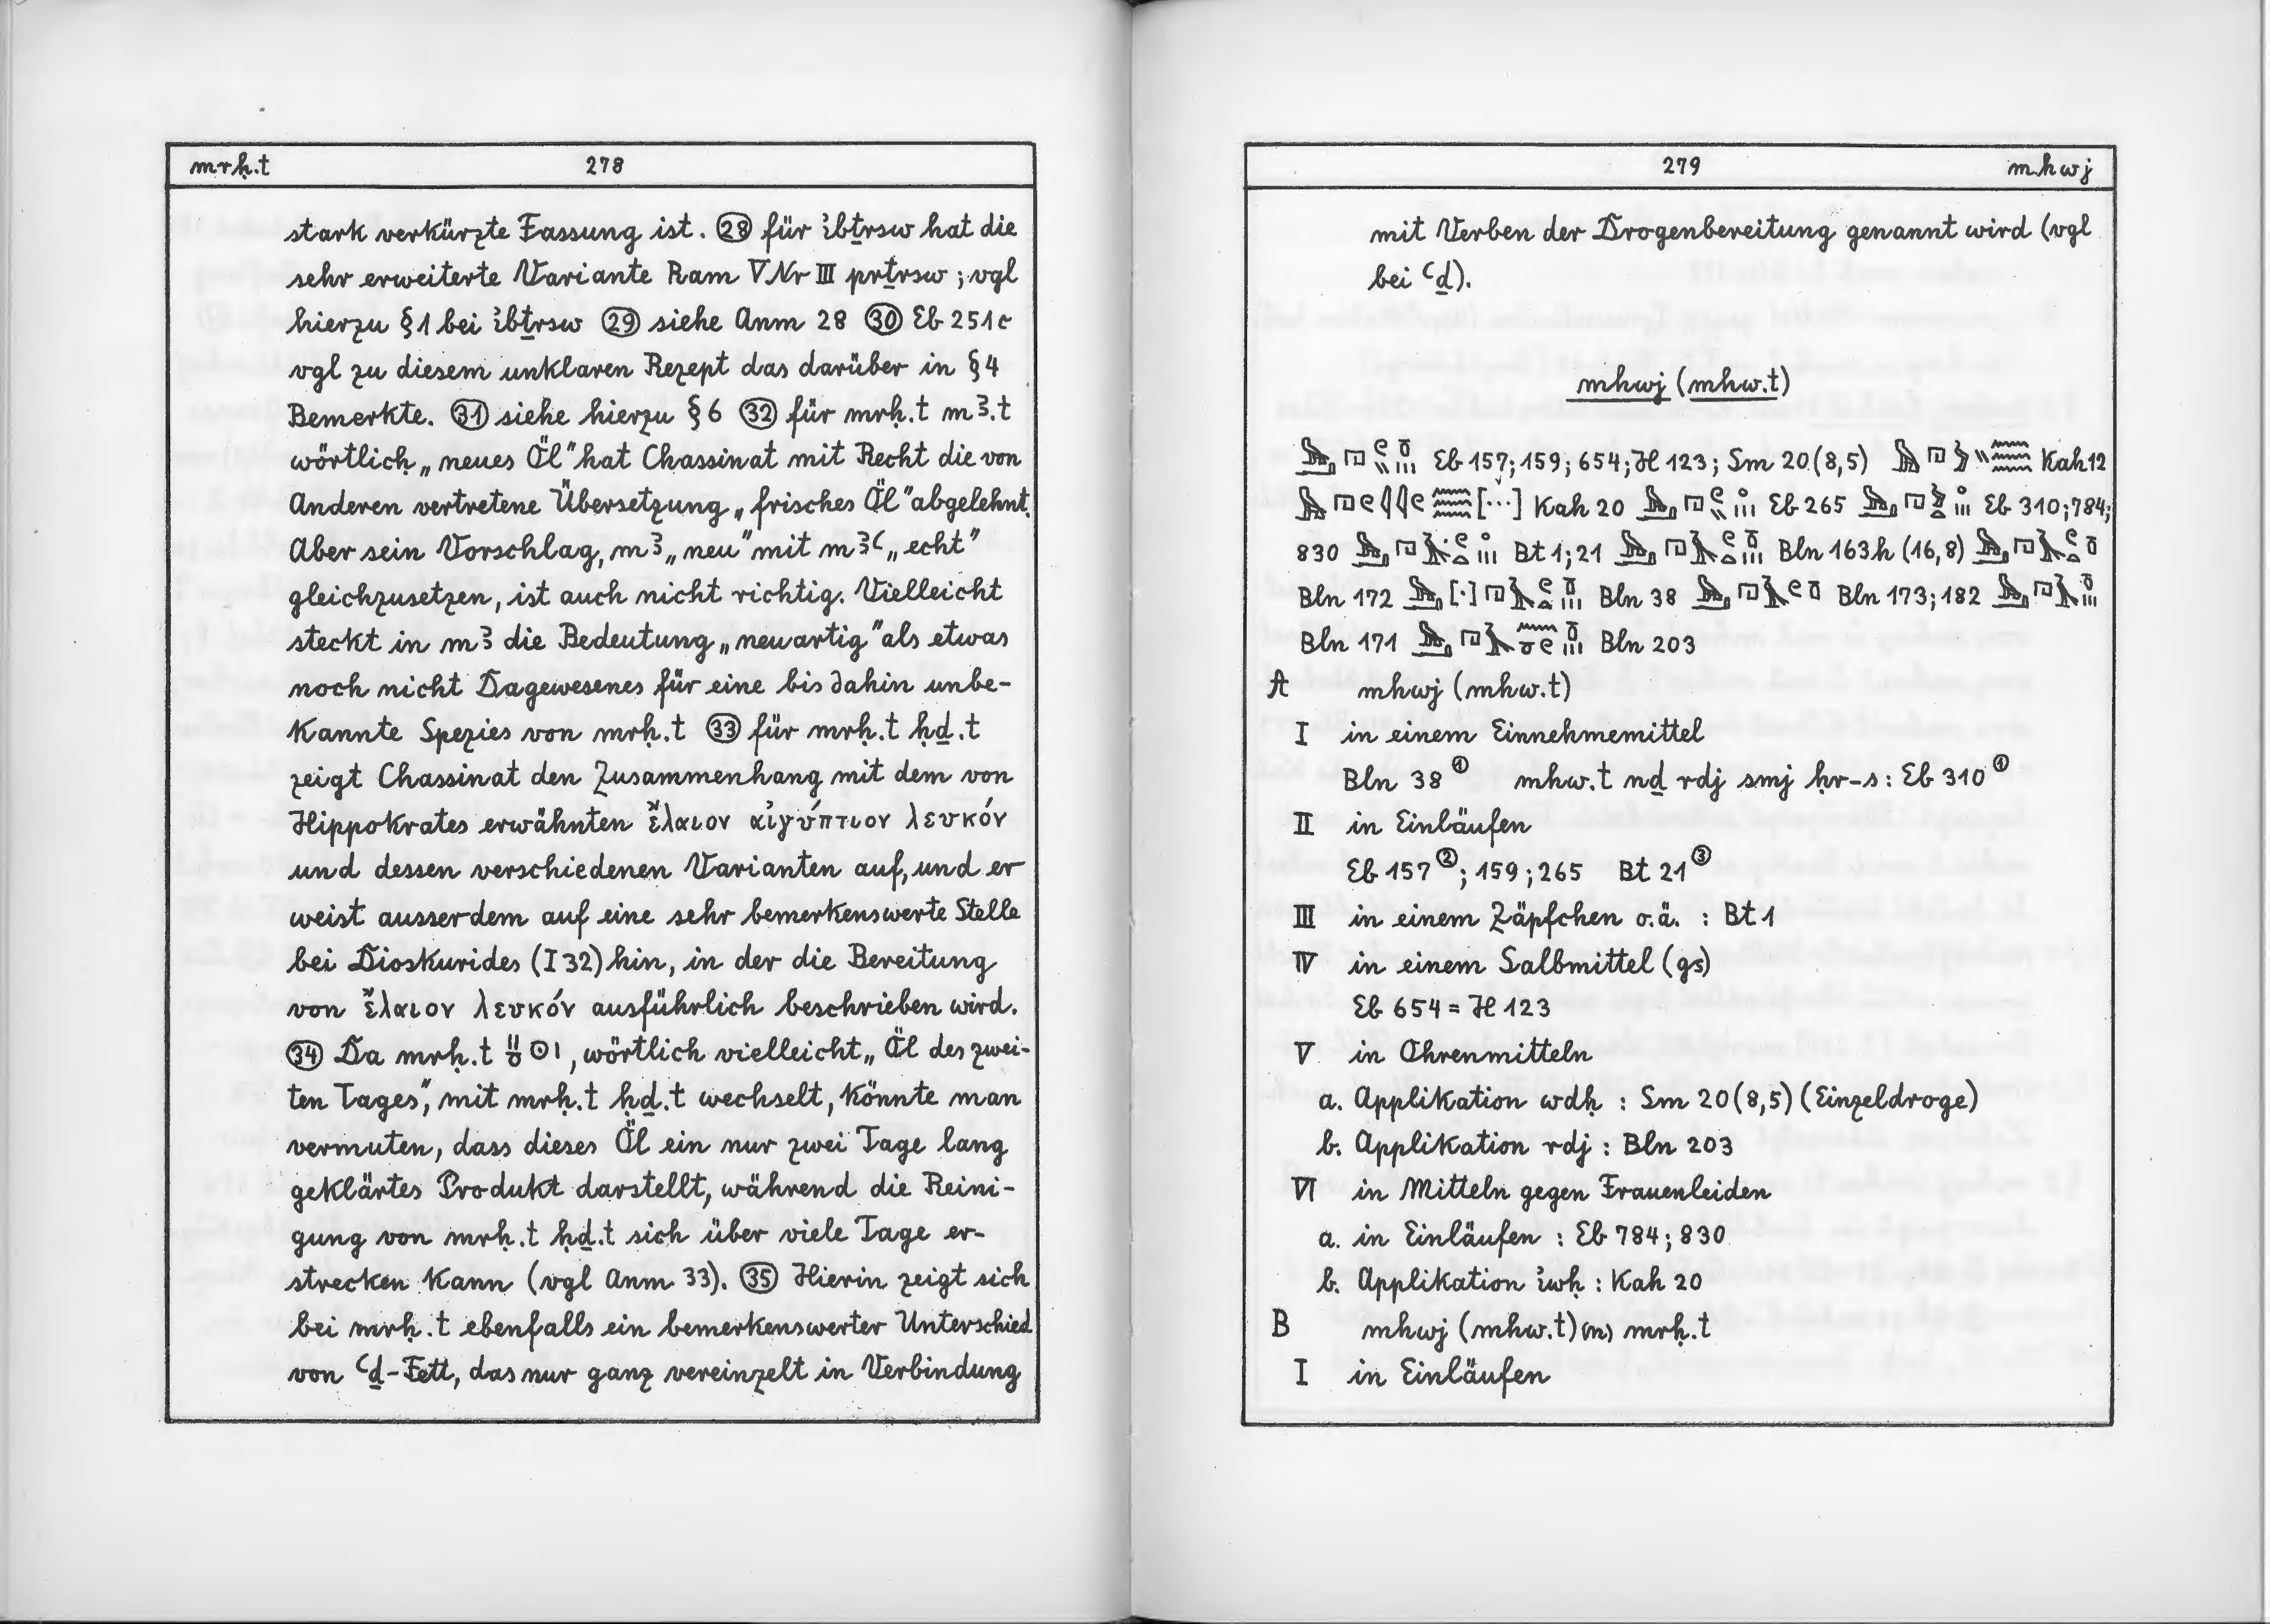 mrḥ.t 278
stark verkürzte Fassung ist. ㉘ für ỉbṯrsw hat die
sehr erweiterte Variante Ram V Nr III prṯrsw ; vgl
hierzu § 1 bei ỉbṯrsw ㉙ siehe Anm 28 ㉚ Eb 251c
vgl zu diesem unklaren Rezept das darüber in § 4
Bemerkte. ㉛ siehe hierzu § 6 ㉜ für mrḥ.t mꜣ.t
wörtlich „neues Öl" hat Chassinat mit Recht die von
Anderen vertretene Übersetzung „frisches Öl" abgelehnt.
Aber sein Vorschlag, mꜣ „neu" mit mꜣꜥ „echt"
gleichzusetzen, ist auch nicht richtig. Vielleicht
steckt in mꜣ die Bedeutung „neuartig" als etwas
noch nicht Dagewesenes für eine bis dahin unbe-
kannte Spezies von mrḥ.t ㉝ für mrḥ.t ḥḏ.t
zeigt Chassinat den Zusammenhang mit dem von
Hippokrates erwähnten ἔλαιον αἰγύπτιον λευκόν
und dessen verschiedenen Varianten auf, und er
weist ausserdem auf eine sehr bemerkenswerte Stelle
bei Dioskurides (I 32) hin, in der die Bereitung
von ἔλαιον λευκόν ausführlich beschrieben wird.
㉞ Da mrḥ.t , wörtlich vielleicht „Öl des zwei-
ten Tages", mit mrḥ.t ḥḏ.t wechselt, könnte man
vermuten, dass dieses Öl ein nur zwei Tage lang
geklärtes Produkt darstellt, während die Reini-
gung von mrḥ.t ḥḏ.t sich über viele Tage er-
strecken kann (vgl Anm 33). ㉟ Hierin zeigt sich
bei mrḥ.t ebenfalls ein bemerkenswerter Unterschied
von ꜥḏ-Fett, das nur ganz vereinzelt in Verbindung
279 mhwj
mit Verben der Drogenbereitung genannt wird (vgl
bei ꜥḏ).
mhwj (mhw.t)
Eb 157; 159; 654; H 123; Sm 20 (8,5) Kah 12
[...] Kah 20 Eb 265 Eb 310; 784;
830 Bt 1; 21 Bln 163h (16,8)
Bln 172 [.] Bln 38 Bln 173; 182
Bln 171 Bln 203
A mhwj (mhw.t)
I in einem Einnehmemittel
Bln 38 ① mhw.t nḏ rdj smj ḥr-s : Eb 310 ①
II in Einläufen
Eb 157 ②; 159; 265 Bt 21 ③
III in einem Zäpfchen o.ä. : Bt 1
IV in einem Salbmittel (gs)
Eb 654 = H 123
V in Ohrenmitteln
a. Applikation wdḥ : Sm 20 (8,5) (Einzeldroge)
b. Applikation rdj : Bln 203
VI in Mitteln gegen Frauenleiden
a. in Einläufen : Eb 784; 830
b. Applikation ỉwḥ : Kah 20
B mhwj (mhw.t) (n) mrḥ.t
I in Einläufen